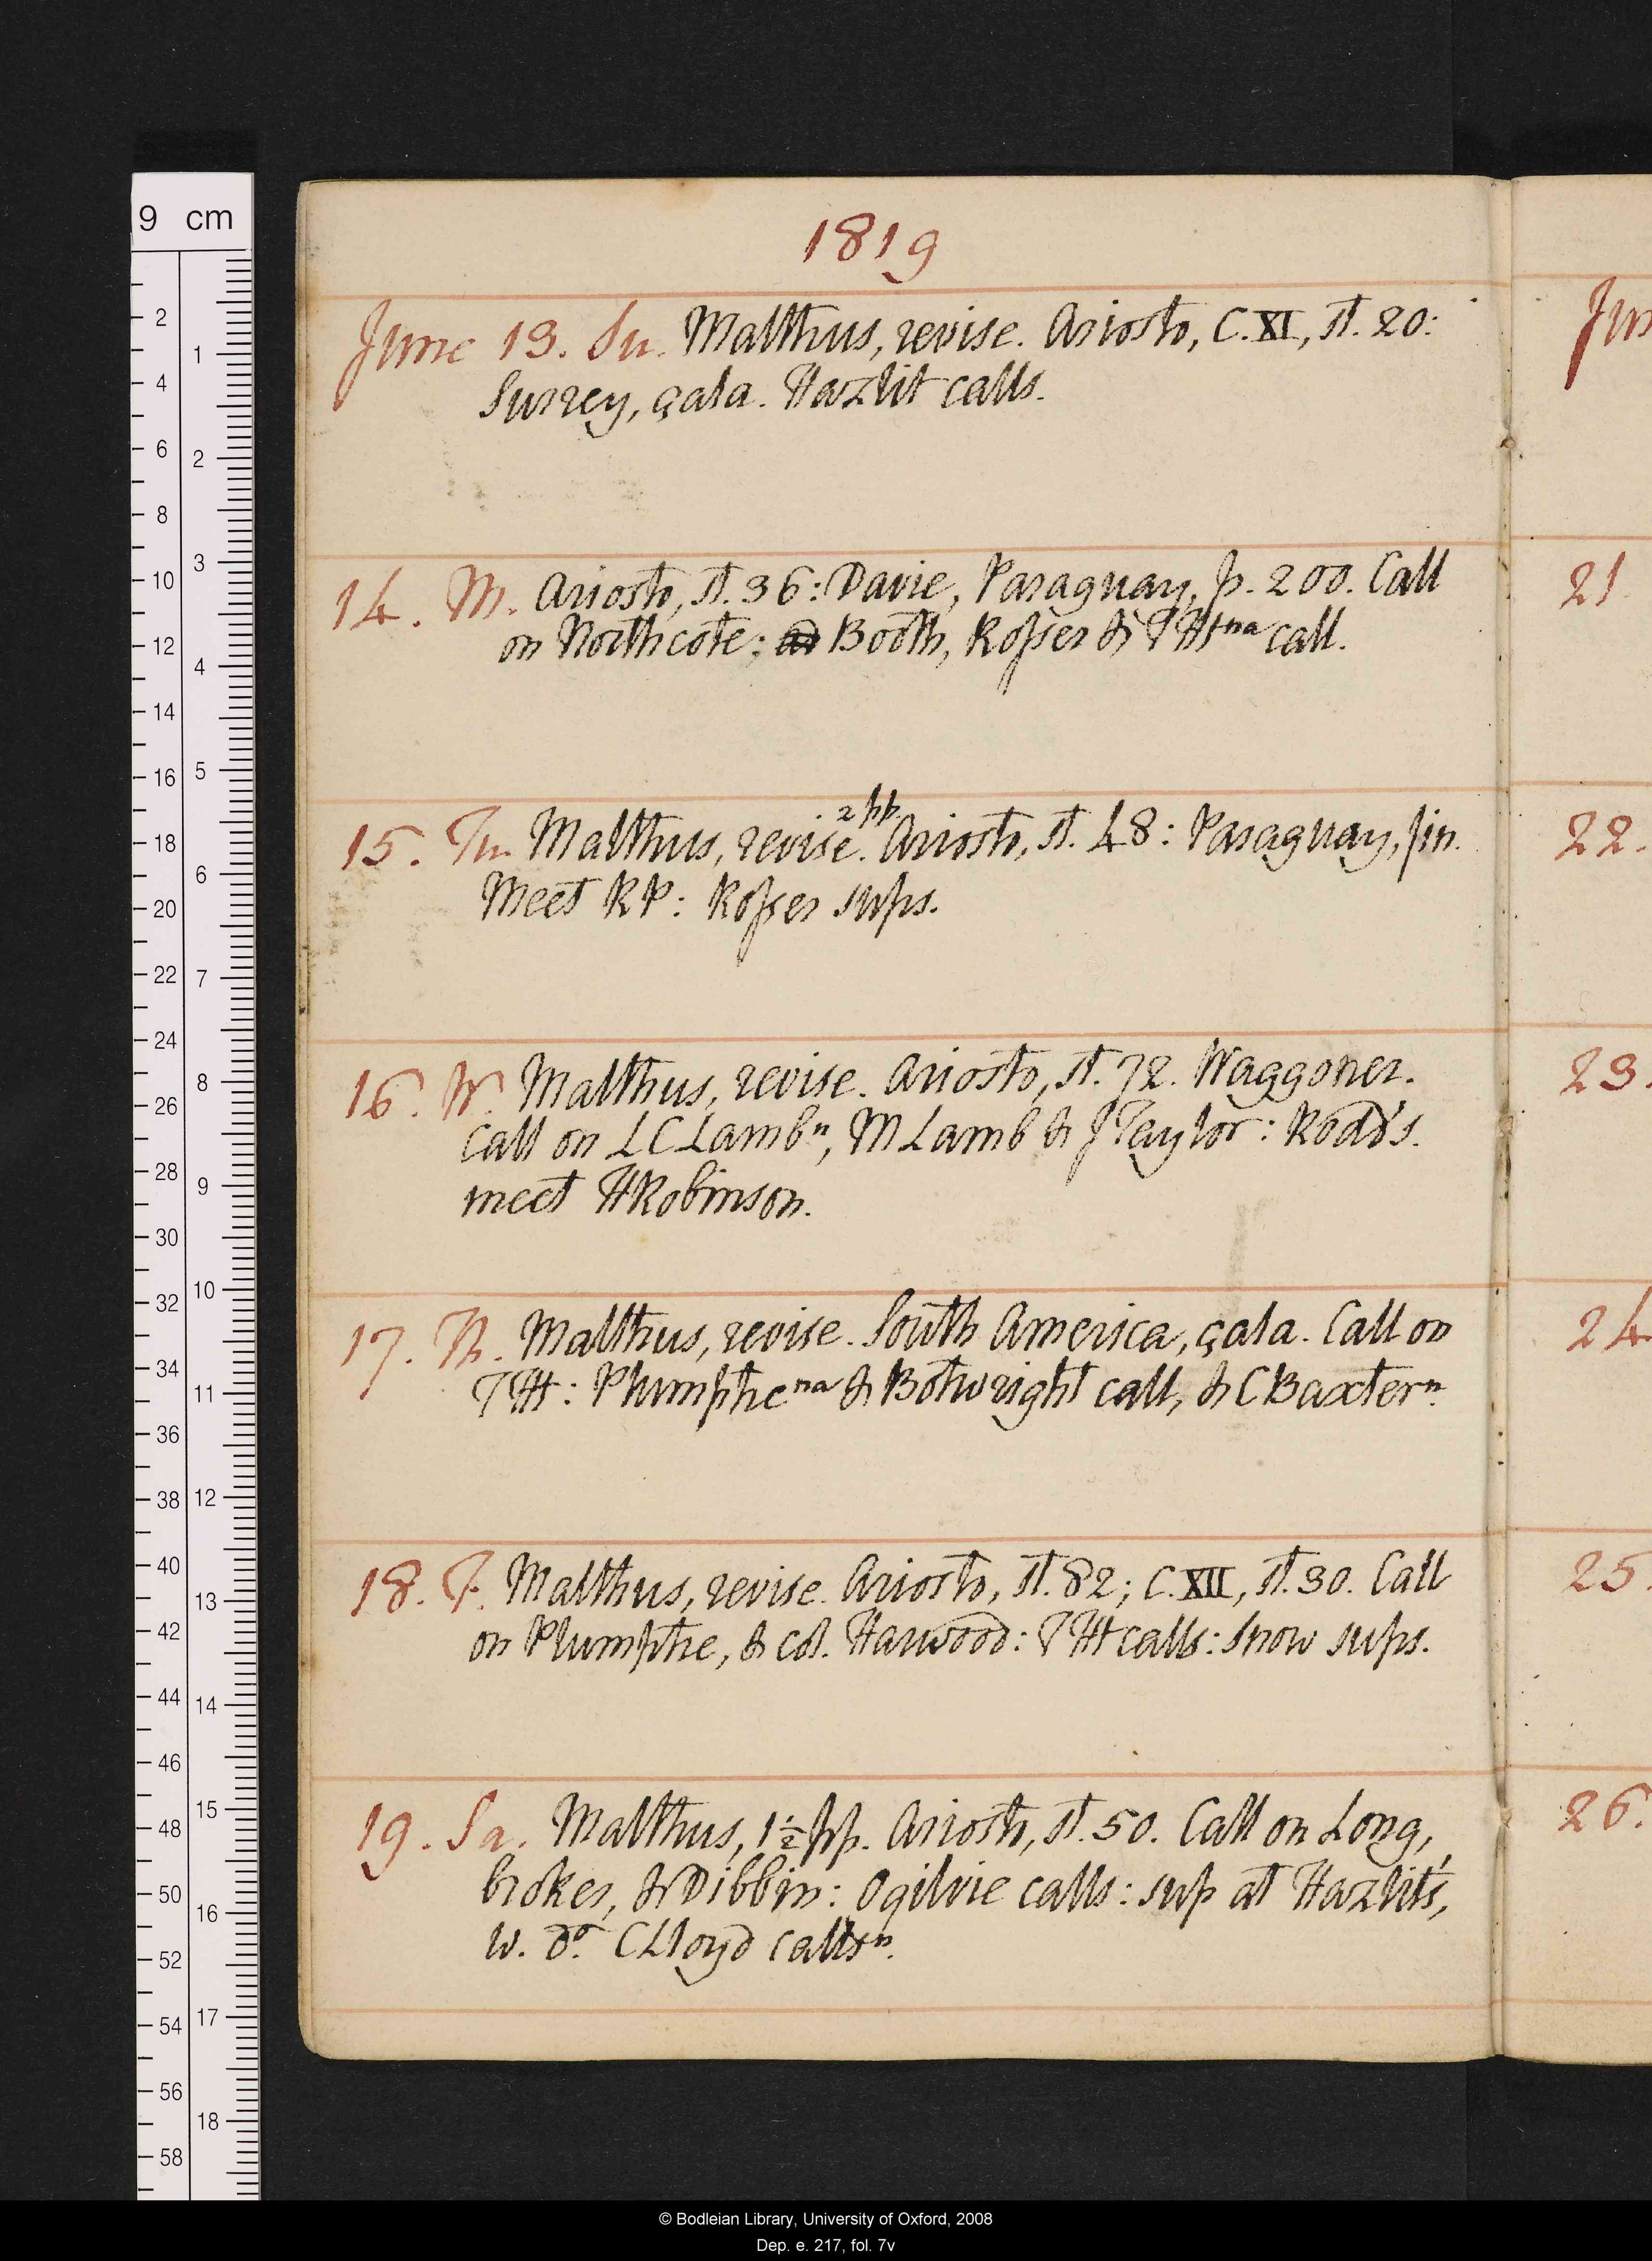 1819
June 13. Su. Malthus, revise. Ariosto, C. XI, st. 20:
Surrey, çala. Hazlit calls.
14. M. Ariosto, st. 36: Davie, Paraguay, p. 200. Call
on Northcote: Booth, Rosser & THna call.
15. Tu. Malthus, revise 2 pp. Ariosto, st. 48: Paraguay, fin.
Meet RP: Rosser sups.
16. W. Malthus, revise. Ariosto, st. 72. Waggoner.
Call on LC Lambn, M Lamb & J Taylor: Rodd's.
meet H Robinson.
17. Th. Malthus, revise. South America, çala. Call on
TH: Plumptrena & Botwright call, & C Baxtern.
18. F. Malthus, revise. Ariosto, st. 82; C. XII, st. 30. Call
on Plumptre, & col. Harwood: TH calls: Snow sups.
19. Sa. Malthus, 1½ pp. Ariosto, st. 50. Call on Long,
broker, & Dibbin: Ogilvie calls: sup at Hazlit's,
w. do. C Lloyd callsn.
Jun
21.
22.
23.
24
25.
26.
9 cm
2
4
6
8
10
12
14
16
18
20
22
24
26
28
30
32
34
36
38
40
42
44
46
48
50
52
54
56
58
1
2
3
4
5
6
7
8
9
10
11
12
13
14
15
16
17
18
© Bodleian Library, University of Oxford, 2008
Dep. e. 217, fol. 7v